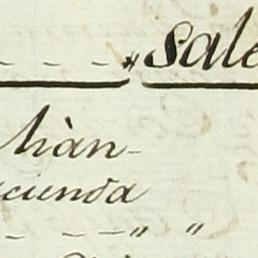 - - - - " Sale
hiàn-
cienda
- - - - " "